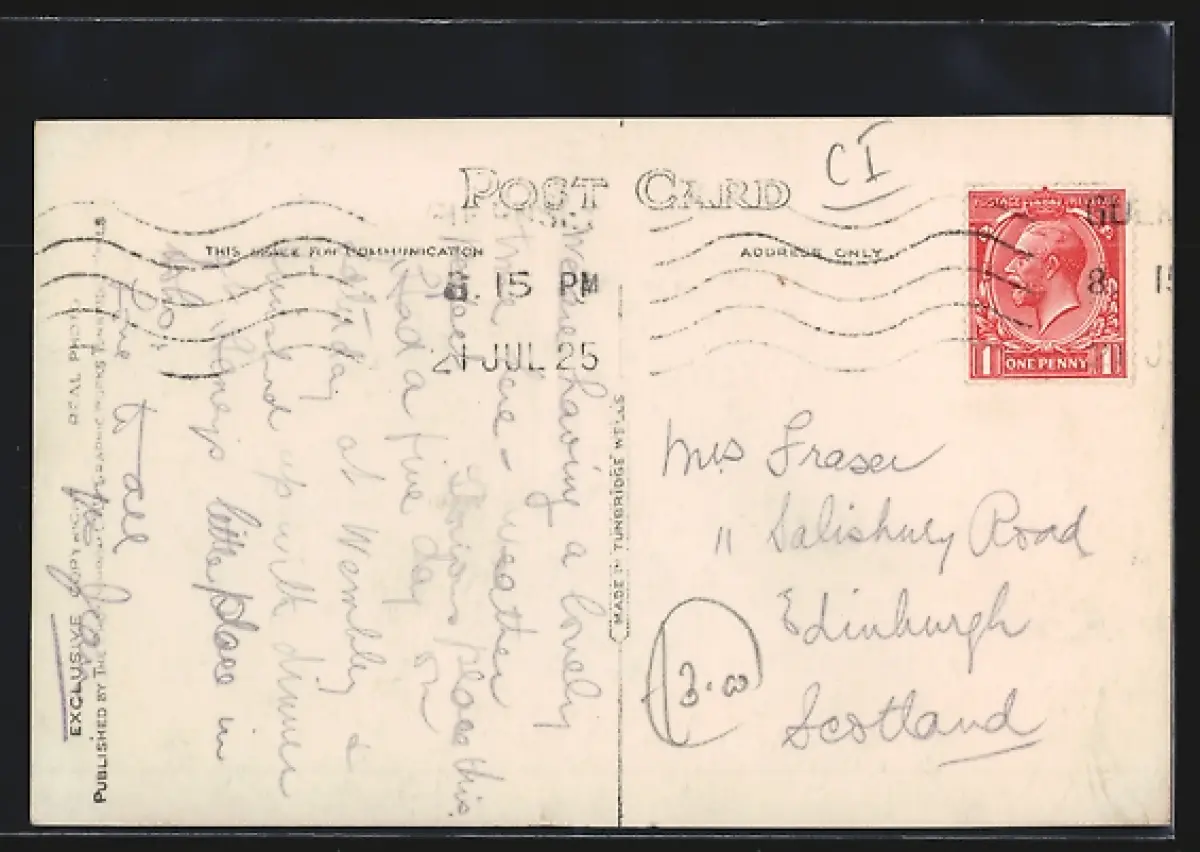 POST CARD
CI
THIS SPACE FOR COMMUNICATION
ADDRESS ONLY
8. 15 PM
21 JUL 25
8. 15
POSTAGE REVENUE
1 ONE PENNY 1
Mrs Fraser
11 Salisbury Road
Edinburgh
Scotland
3.00
MADE IN TUNBRIDGE WELLS
We are having a lovely
time here - weather
Glorious place this.
Had a fine day on
at Wembley &
up with dinner
little place in
Love to all
EXCLUSIVE
REAL PHOTO
PUBLISHED BY THE